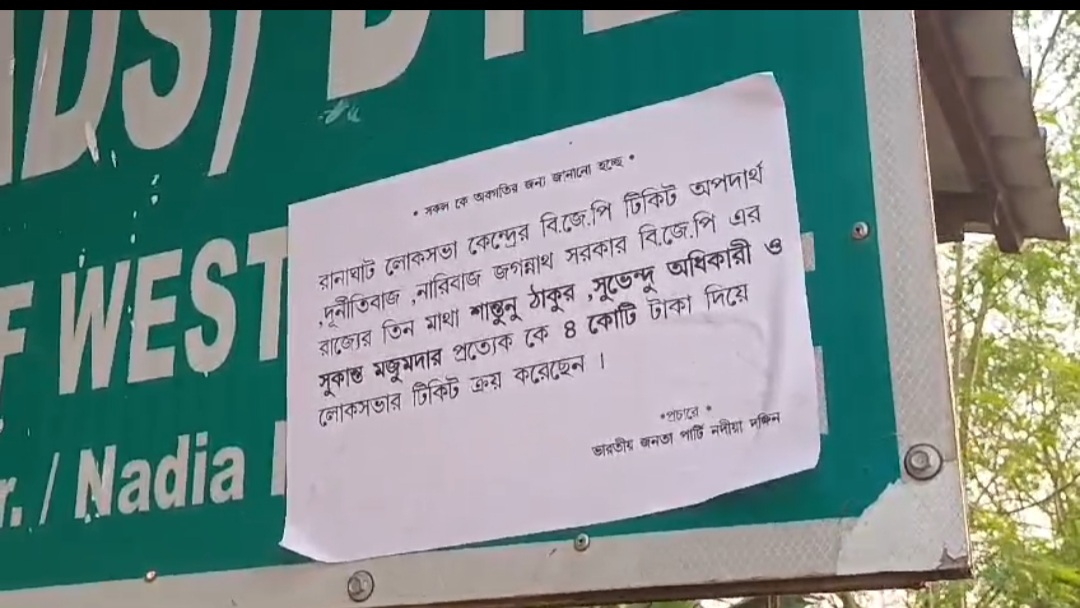 WEST
/ Nadia
• সকল কে অবগতির জন্য জানানো হচ্ছে •
রানাঘাট লোকসভা কেন্দ্রের বি.জে.পি টিকিট অপদার্থ
,দূর্নীতিবাজ ,নারিবাজ জগন্নাথ সরকার বি.জে.পি এর
রাজ্যের তিন মাথা শান্তুনু ঠাকুর ,সুভেন্দু অধিকারী ও
সুকান্ত মজুমদার প্রত্যেক কে ৪ কোটি টাকা দিয়ে
লোকসভার টিকিট ক্রয় করেছেন ।
•প্রচারে •
ভারতীয় জনতা পার্টি নদীয়া দক্ষিন